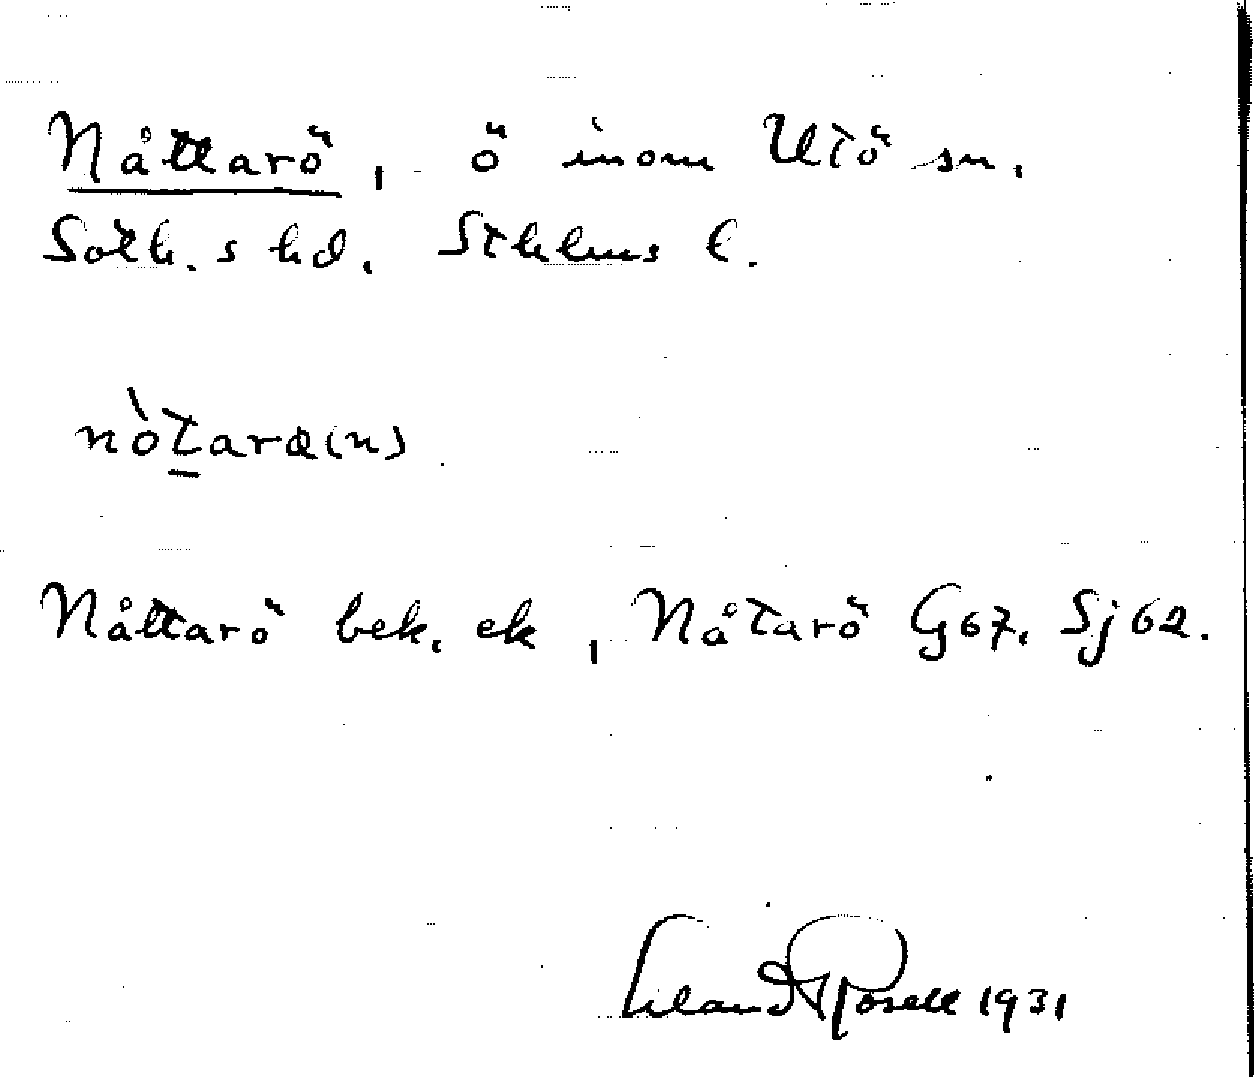 Nåttarö, ö inom Utö sn.
Soth.s hd. Sthlms l.
nòtara(n)
Nåttarö bek. ek, Nåtarö G67. Sj62.
Erland Rosell 1931